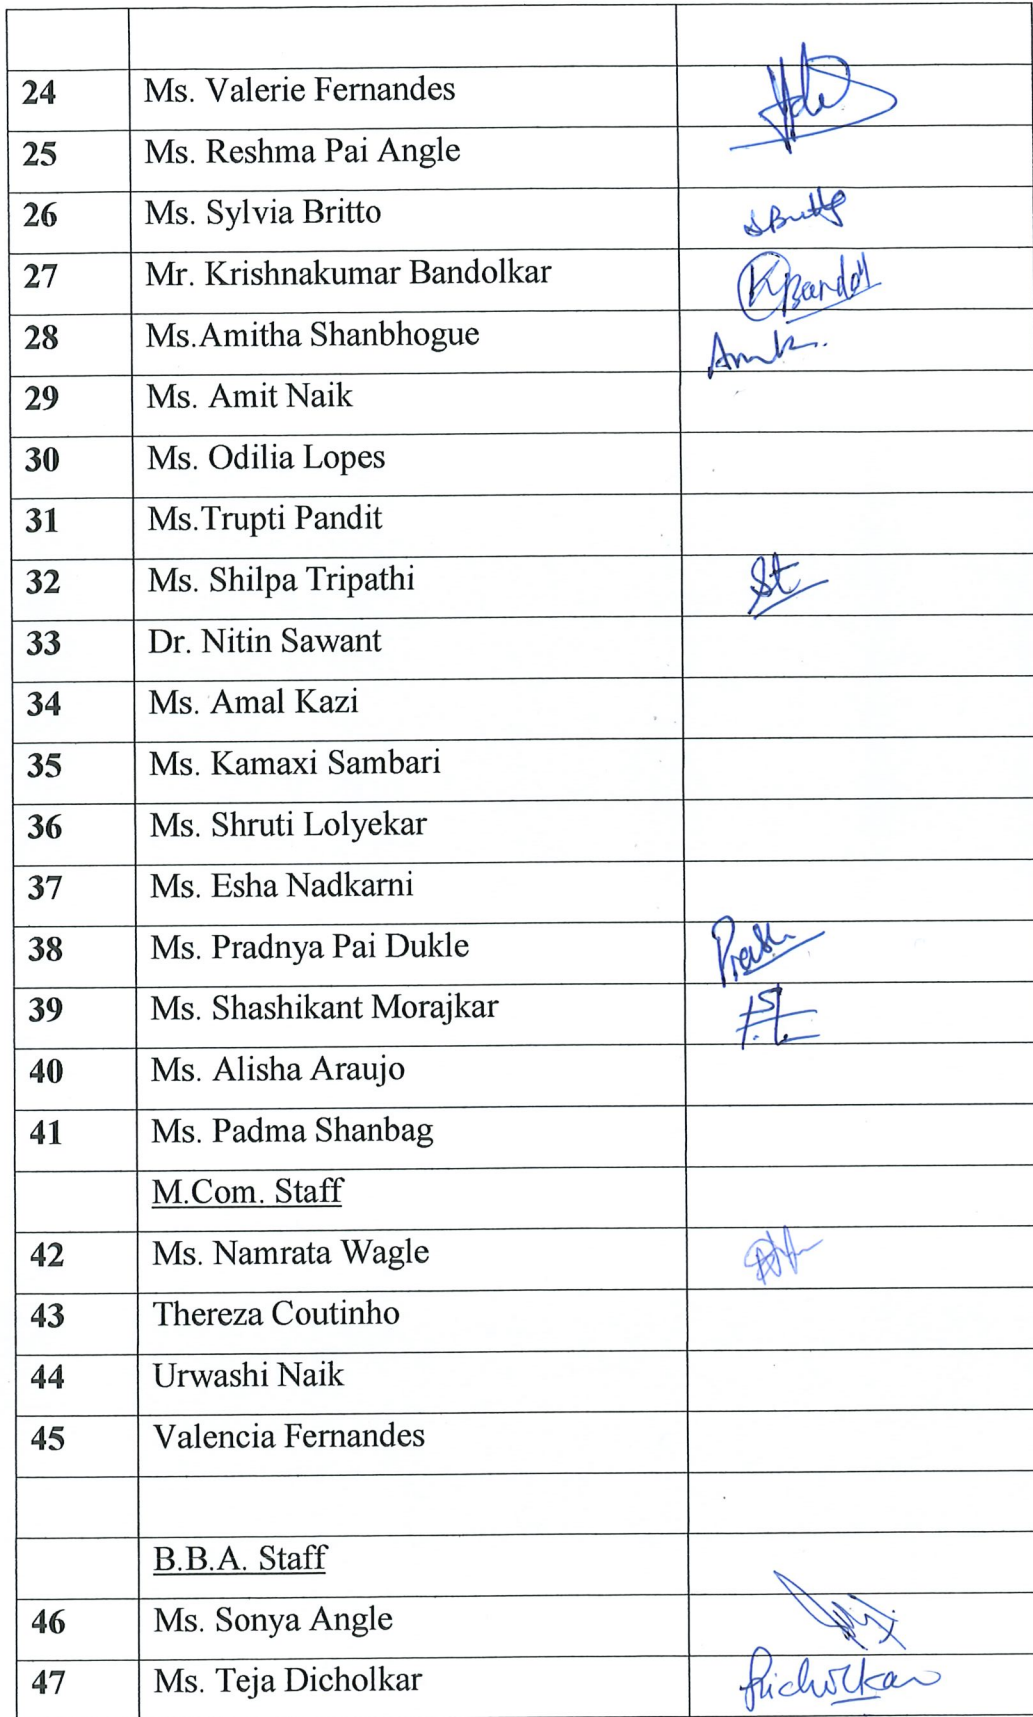 24 Ms. Valerie Fernandes
25 Ms. Reshma Pai Angle
26 Ms. Sylvia Britto SBritto
27 Mr. Krishnakumar Bandolkar KBandol
28 Ms.Amitha Shanbhogue
29 Ms. Amit Naik
30 Ms. Odilia Lopes
31 Ms.Trupti Pandit
32 Ms. Shilpa Tripathi St
33 Dr. Nitin Sawant
34 Ms. Amal Kazi
35 Ms. Kamaxi Sambari
36 Ms. Shruti Lolyekar
37 Ms. Esha Nadkarni
38 Ms. Pradnya Pai Dukle
39 Ms. Shashikant Morajkar
40 Ms. Alisha Araujo
41 Ms. Padma Shanbag
M.Com. Staff
42 Ms. Namrata Wagle
43 Thereza Coutinho
44 Urwashi Naik
45 Valencia Fernandes
B.B.A. Staff
46 Ms. Sonya Angle
47 Ms. Teja Dicholkar Dicholkar